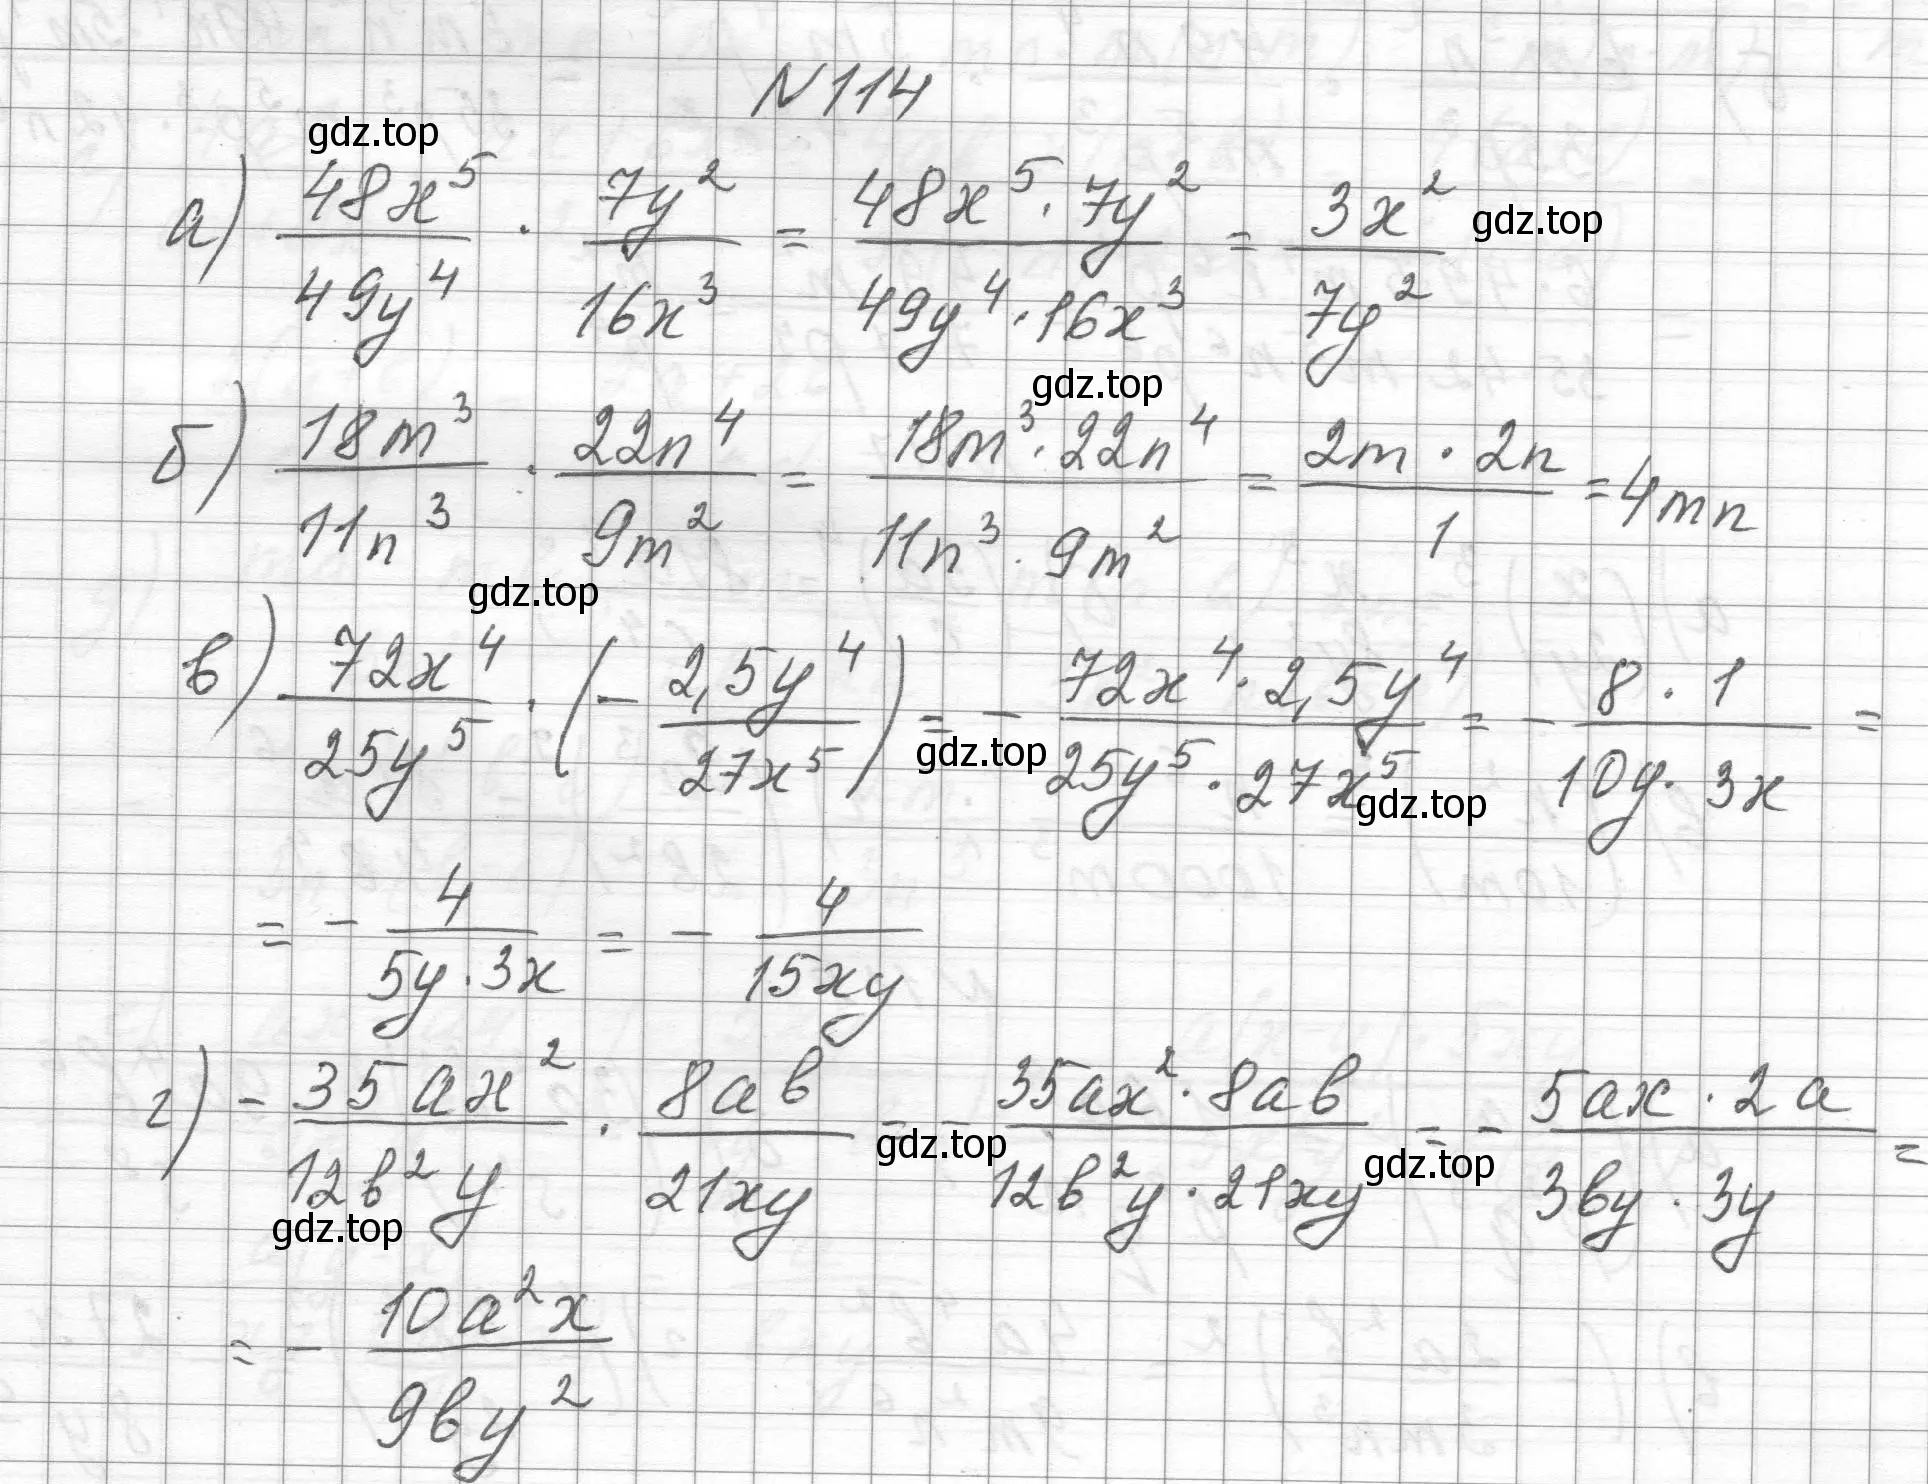 N 114
gdz.top
а) 48x⁵/49y⁴ · 7y²/16x³ = 48x⁵·7y²/49y⁴·16x³ = 3x²/7y² gdz.top
gdz.top
б) 18m³/11n³ · 22n⁴/9m² = 18m³·22n⁴/11n³·9m² = 2m·2n/1 = 4mn
gdz.top
в) 72x⁴/25y⁵ · (- 2,5y⁴/27x⁵) = - 72x⁴·2,5y⁴/25y⁵·27x⁵ = - 8·1/10y·3x =
gdz.top gdz.top
= - 4/5y·3x = - 4/15xy
г) - 35ax²/12b²y · 8ab/21xy = - 35ax²·8ab/12b²y·21xy = - 5ax·2a/3by·3y =
gdz.top gdz.top
gdz.top
= - 10a²x/9by²